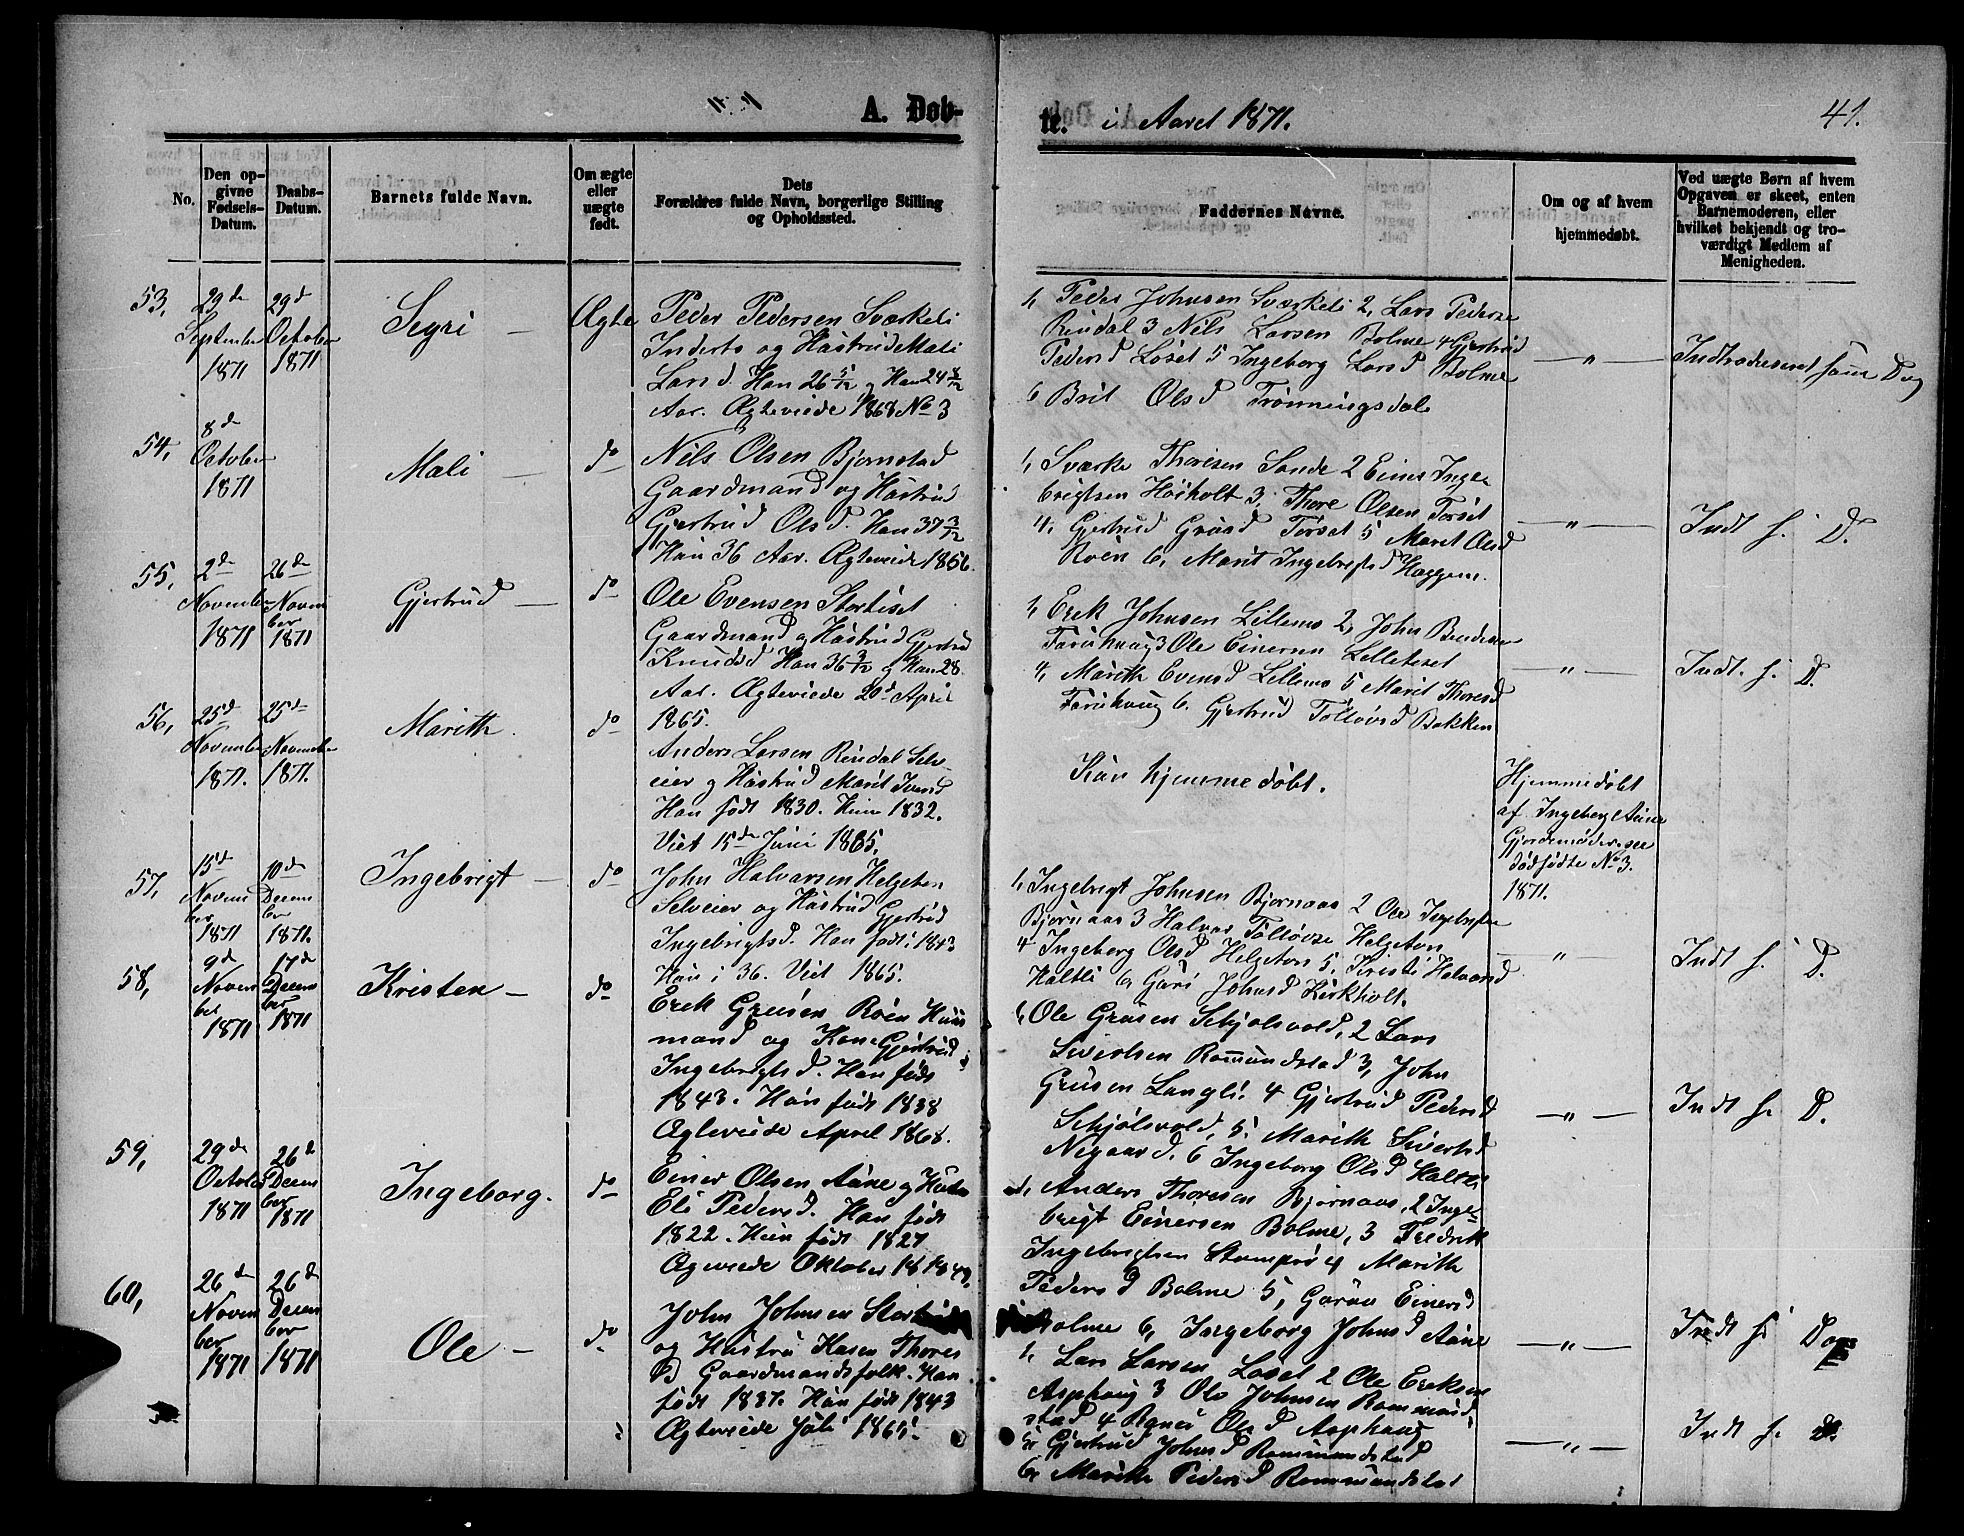 A. Døb-
te. i Aaret 1871.
41.
No.
Den op-
givne
Fødsels-
Datum.
Daabs-
Datum.
Barnets fulde Navn.
Om ægte
eller
uægte
født.
Dets
Forældres fulde Navn, borgerlige Stilling
og Opholdssted.
Faddernes Navne.
Om og af hvem
hjemmedøbt.
Ved uægte Børn af hvem
Opgaven er skeet, enten
Barnemoderen, eller
hvilket bekjendt og tro-
værdigt Medlem af
Menigheden.
53,
29de
September
1871
29d
October
1871
Segri —
Ægte
Peder Pedersen Sværkeli
Inderts og Hústrú Mali
Larsd. Han 26 5/12 og Hun 24 8/12
Aar. Ægteviede 1868 No 3
1, Peder Johnsen Sværkeli 2, Lars Peders
Rindal 3 Nils Larsen Bolme 4 Gjertrud
Pedersd Løset 5 Ingeborg Larsd Bolme
6 Brit Olsd Trønningsdal
— " —
Indtroduseret same Dag
54,
8de
October
1871
Mali —
do
Nils Olsen Bjørnstad
Gaardmand og Hústrú
Gjertrud Olsd. Han 37 3/12
Hún 36 Aar. Ægteviede 1856.
1, Sværke Thoresen Sande 2 Einer Inge
brigtsen Høiholt 3, Thore Olsen Torset
4, Gjertrud Gråsd Torset 5 Marit Olsd
Roen 6, Marit Ingebrigtsd Haggem.
— " —
Indt s. D.
55,
2de
November
1871
26de
Novem
ber
1871
Gjertrud —
do
Ole Evensen Stortiset
Gaardmand og Hústrú Gjertrud
Knudsd Han 36 3/12 og Hun 28
Aar. Ægteviede 20de April
1865.
1, Erik Johnsen Lillemo 2, John
3 Ole Einersen Lilletiset
4, Marith Evensd Lillemo 5 Marit Thoresd
6, Gjertrud Tølløvsd Bakken
— " —
Indt. s. D.
56,
25de
November
1871.
25de
November
1871.
Marith.
do
Anders Larsen Rindal Selv-
eier og Hústrú Marit Iversd
Han født 1830. Hun 1832.
Viet 15de Juni 1865.
Kún hjemmedøbt.
Hjemmedøbt
af Ingeborg Aune
Gjordemoder see
dødfødte No 3.
1871.
57,
15de
Novem
ber
1871
10de
Decem
ber
1871.
Ingebrigt —
do
John Halvarsen Helgeton
Selveier og Hústrú Gjertrud
Ingebrigtsd. Han født 1843
Hún i 36. Viet 1865.
1, Ingebrigt Johnsen Bjørnaas 2 Ole Ingebrigtsen
Bjørnaas 3 Halvar Tølløvse Helgeton
4 Ingeborg Olsd Helgeton 5, Kristi Halvarsd
Haltli 6, Guri Johnsd Kirkholt.
— " —
Indt s. D.
58,
9de
Novem
ber
1871
17de
Decem
ber
1871
Kristen —
do
Erik Grúsen Røen Hús
mand og Kone Gjertrúd
Ingebrigtsd. Han født
1843. Hún født 1838
Ægteviede April 1868.
1, Ole Grúsen Skjølsvold, 2 Lars
Sivertsen Romúndstad 3, John
Grúsen Langli 4 Gjertrúd Pedersd
Skjølsvold, 5. Marith Sivertsd
Nygaard, 6 Ingeborg Olsd Haltli
— " —
Indt s. D.
59,
29de
October
1871
26de
Decem
ber
1871
Ingeborg.
do
Einer Olsen Aúne og Hústru
Eli Pedersd. Han født
1822. Hún født 1827
Ægteviede Oktober 1849.
1, Anders Thoresen Bjørnaas, 2 Inge-
brigt Einersen Bolme, 3 Fredrik
Ingebrigtsen Stomprø 4 Marith
Pedersd Bolme 5, Gúrúa Einersd
Bolme 6, Ingeborg Johnsd Aúne
— " —
Indt s. Dag
60,
26de
Novem
ber
1871
26de
Decem
ber
1871
Ole —
do
John Johnsen
og Hústrú Karen Thores
D Gaardmandsfolk. Han
født 1837. Hún født 1843
Ægteviede Júli 1865.
1, Lars Larsen Løset 2 Ole Eriksen
Asphaúg 3 Ole Johnsen Rommúnd-
stad 4 Ranei Olsd Asphaug
5, Gjertrúd Johnsd Rommúndstad
6, Marith Pedersd Rommúndstad
— " —
Indt s. D.